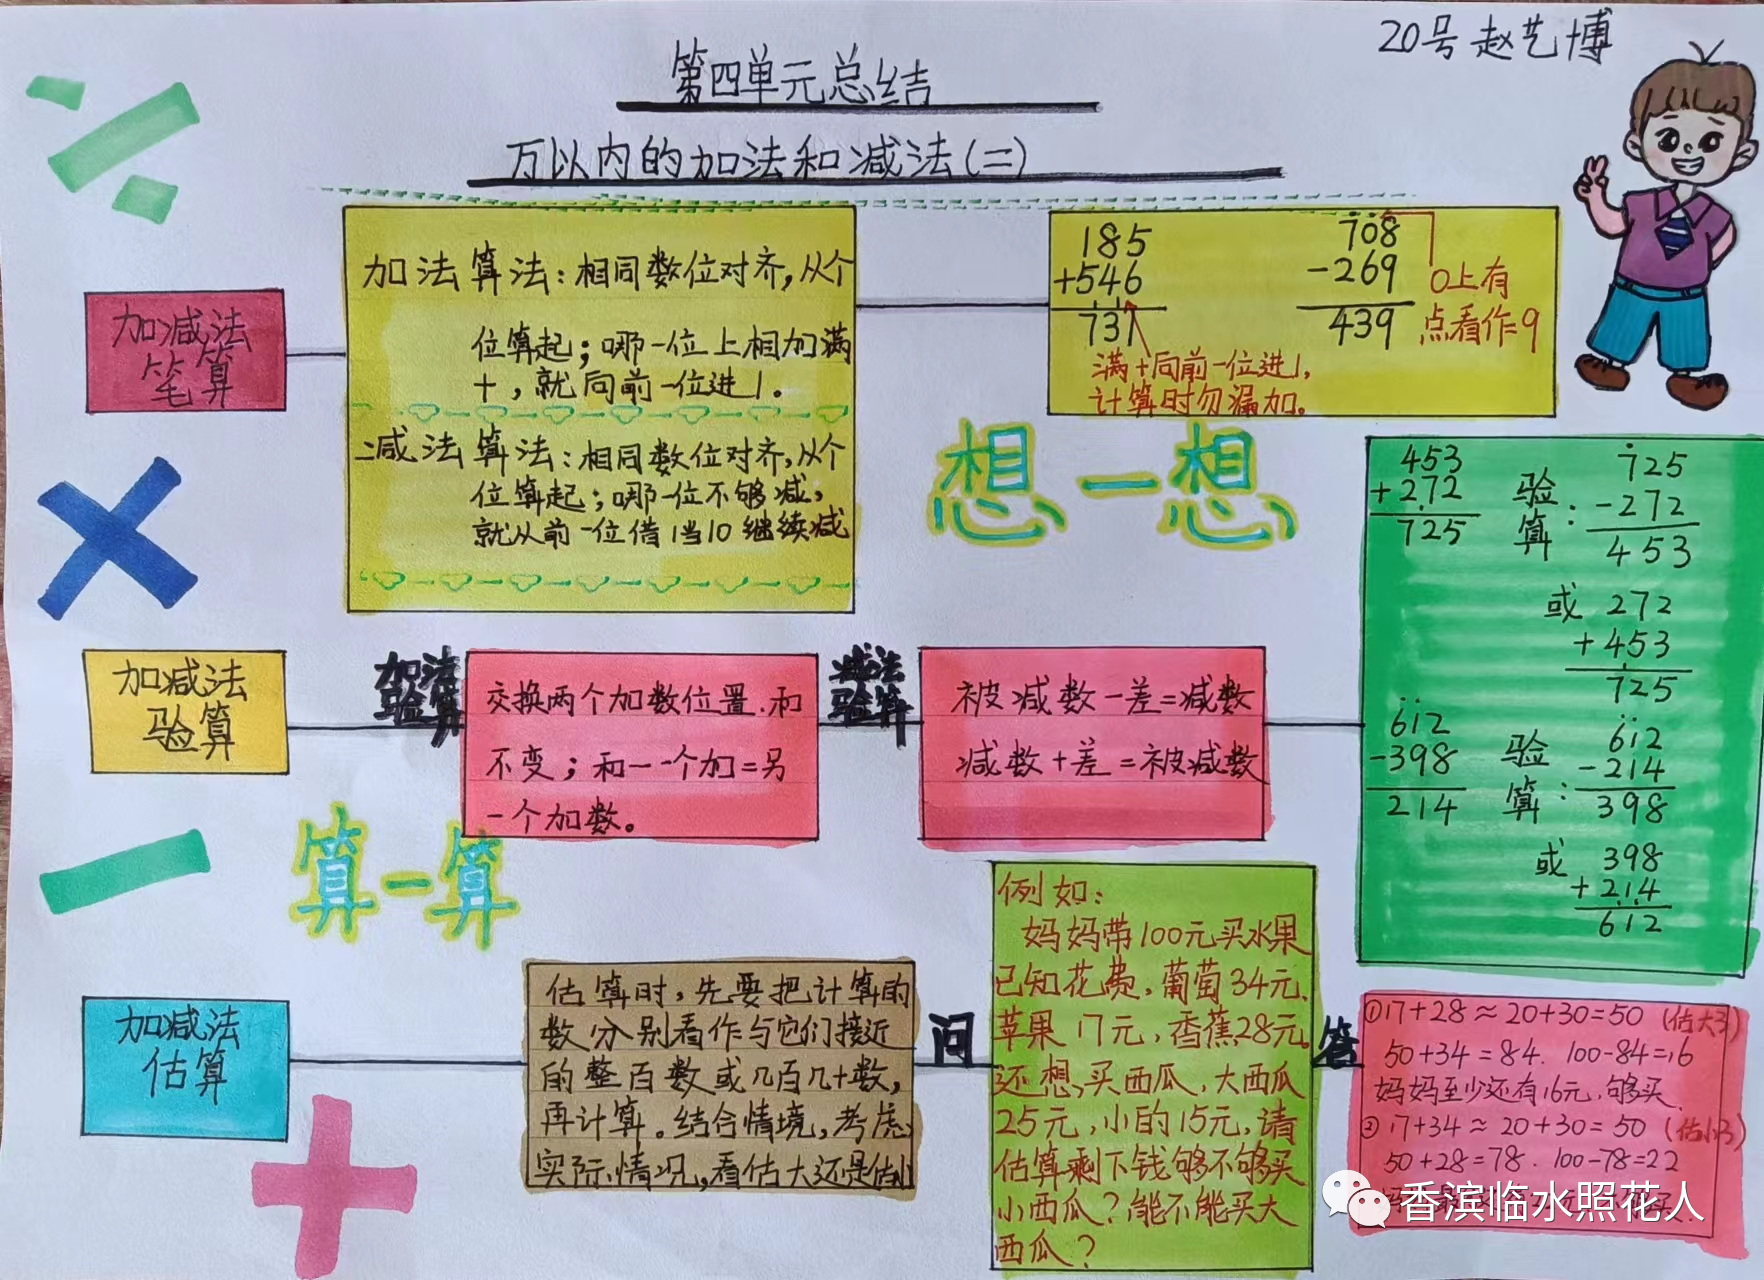 20号 赵艺博
第四单元总结
万以内的加法和减法(二)
加减法
笔算
加法算法:相同数位对齐,从个
位算起;哪一位上相加满
十,就向前一位进1.
减法算法:相同数位对齐,从个
位算起;哪一位不够减,
就从前一位借1当10继续减
185
+546
731
满十向前一位进1,
计算时勿漏加。
708
-269
439
0上有
点看作9
想一想
453
+272
725
验
算:
725
-272
453
或 272
+453
725
612
-398
214
验
算:
612
-214
398
或 398
+214
612
加减法
验算
加法
验算
交换两个加数位置.和
不变;和一一个加=另
一个加数。
减法
验算
被减数-差=减数
减数+差=被减数
算一算
加减法
估算
估算时,先要把计算的
数分别看作与它们接近
的整百数或几百几十数,
再计算。结合情境,考虑
实际情况,看估大还是估小
问
例如:
妈妈带100元买水果
已知花费,葡萄34元.
苹果17元,香蕉28元。
还想买西瓜,大西瓜
25元,小的15元,请
估算剩下钱够不够买
小西瓜?能不能买大
西瓜?
答
①17+28≈20+30=50 (估大了)
50+34=84. 100-84=16
妈妈至少还有16元,够买
② 17+34≈20+30=50 (估小了)
50+28=78. 100-78=22
香滨临水照花人